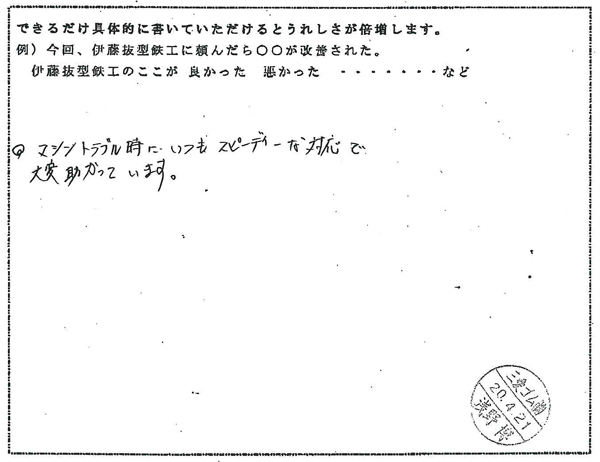 できるだけ具体的に書いていただけるとうれしさが倍増します。
例）今回、伊藤抜型鉄工に頼んだら〇〇が改善された。
伊藤抜型鉄工のここが 良かった 悪かった ・・・・・・・など
マシントラブル時に いつも スピーディーな対応で
大変助かって います。
20.4.21
浅野